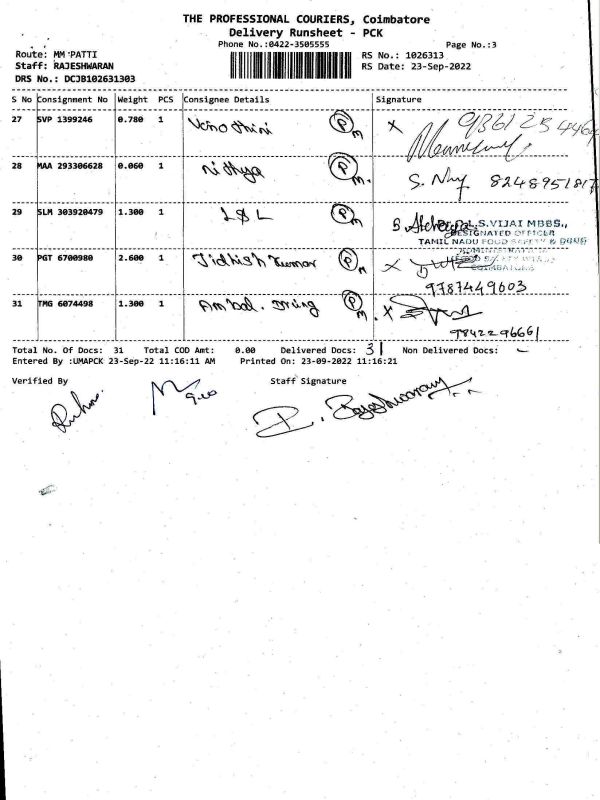 THE PROFESSIONAL COURIERS, Coimbatore
Delivery Runsheet - PCK
Phone No.:0422-3505555
Page No.:3
Route: MM PATTI
RS No.: 1026313
Staff: RAJESHWARAN
RS Date: 23-Sep-2022
DRS No.: DCJB102631303
S No Consignment No Weight PCS Consignee Details Signature
27 SVP 1399246 0.780 1 Vinothini P M X 
28 MAA 293306628 0.060 1 Nithya P M. S. 8248951817
29 SLM 303920479 1.300 1 L&L P M
S.VIJAI MBBS.,
DESIGNATED OFFICER
TAMIL NADU FOOD SAFETY & DRUG
30 PGT 6700980 2.600 1 Jidhish Kumar P M X
COIMBATORE
9787449603
31 TMG 6074498 1.300 1 Ambal. P M. X
9842296661
Total No. Of Docs: 31 Total COD Amt: 0.00 Delivered Docs: 31 Non Delivered Docs: -
Entered By :UMAPCK 23-Sep-22 11:16:11 AM Printed On: 23-09-2022 11:16:21
Verified By
Staff Signature
9.00